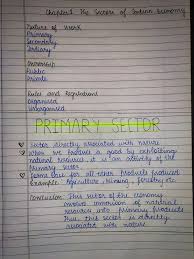 Chapter:1 The Sectors of Indian Economy
Nature of Work
Primary
Secondary
Tertiary
Ownership
Public
Private
Rules and Regulations
Organised
Unorganised
PRIMARY SECTOR
Sector directly associated with nature
When we produce a good by exploiting
natural resources, it is an activity of the
primary sector
forms base for all other products produced
Example: Agriculture, mining, fishery etc
Conclusion: This sector of the economy
involve conversion of natural
resources into primary products
Thus this sector is directly
associated with nature